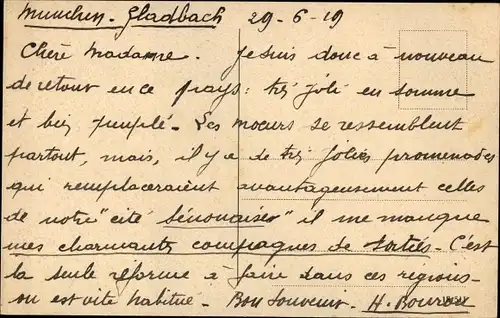 Munchen-Gladbach 29-6-19
Chère Madame. Je suis donc à nouveau
de retour en ce pays: très joli en somme
et bien peuplé. Les moeurs se ressemblent
partout, mais, il y a de très jolies promenades
qui remplaceraient avantageusement celles
de notre "cité Sénonaise" il me manque
mes charmants compagnes de sorties. C'est
la seule réforme à faire dans ces régions-
on est vite habitué. Bon Souvenir. H.